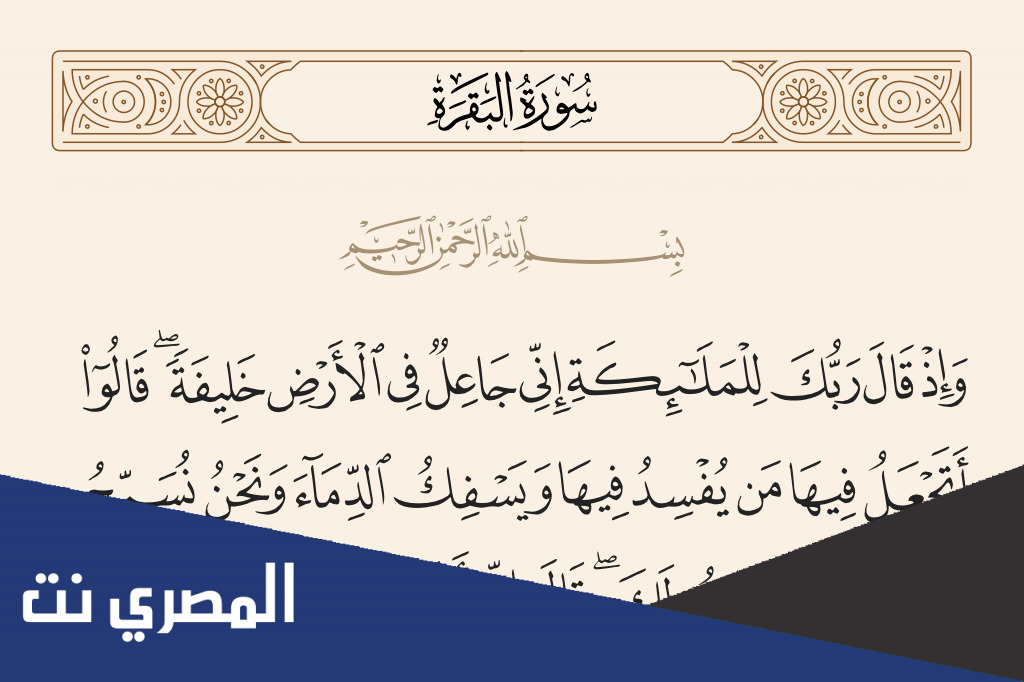 سُورَةُ البَقَرَةِ
بِسْمِ ٱللَّهِ ٱلرَّحْمَٰنِ ٱلرَّحِيمِ
وَإِذْ قَالَ رَبُّكَ لِلْمَلَٰٓئِكَةِ إِنِّى جَاعِلٌ فِى ٱلْأَرْضِ خَلِيفَةً ۖ قَالُوٓا۟
أَتَجْعَلُ فِيهَا مَن يُفْسِدُ فِيهَا وَيَسْفِكُ ٱلدِّمَآءَ وَنَحْنُ نُسَبِّحُ
لَكَ ۖ قَالَ
المصري نت